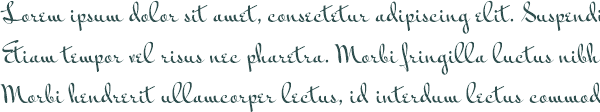 Lorem ipsum dolor sit amet, consectetur adipiscing elit. Suspendi
Etiam tempor vel risus nec pharetra. Morbi fringilla luctus nibh
Morbi hendrerit ullamcorper lectus, id interdum lectus commod